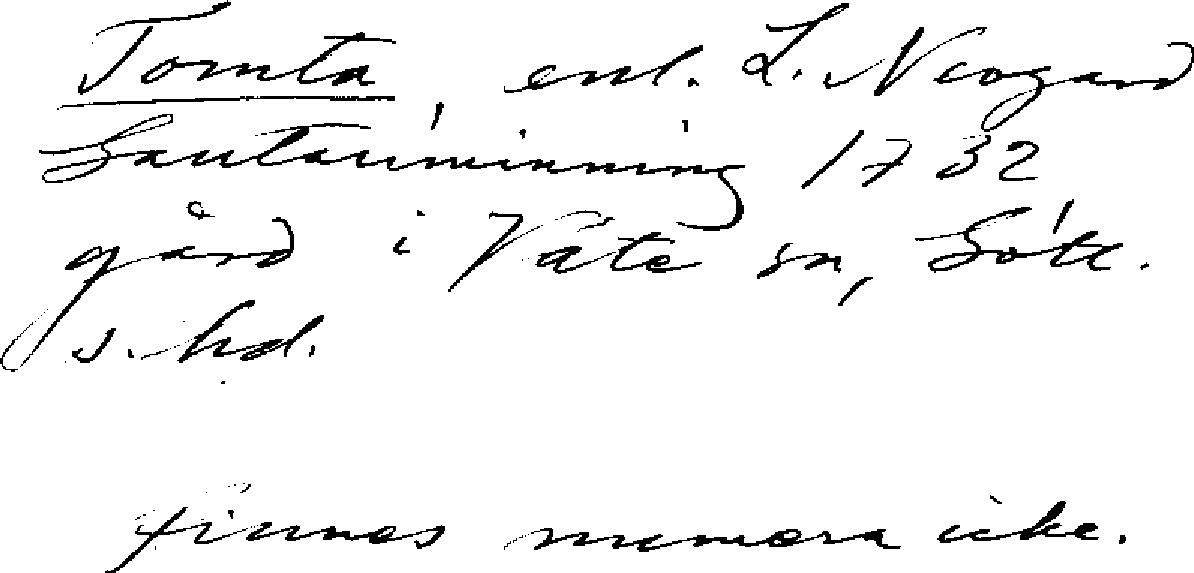 Tomta, enl. L. Neogard
Gautauminning 1732
gård i Väte sn, Gotl.
s. hd.
finnes numera icke.